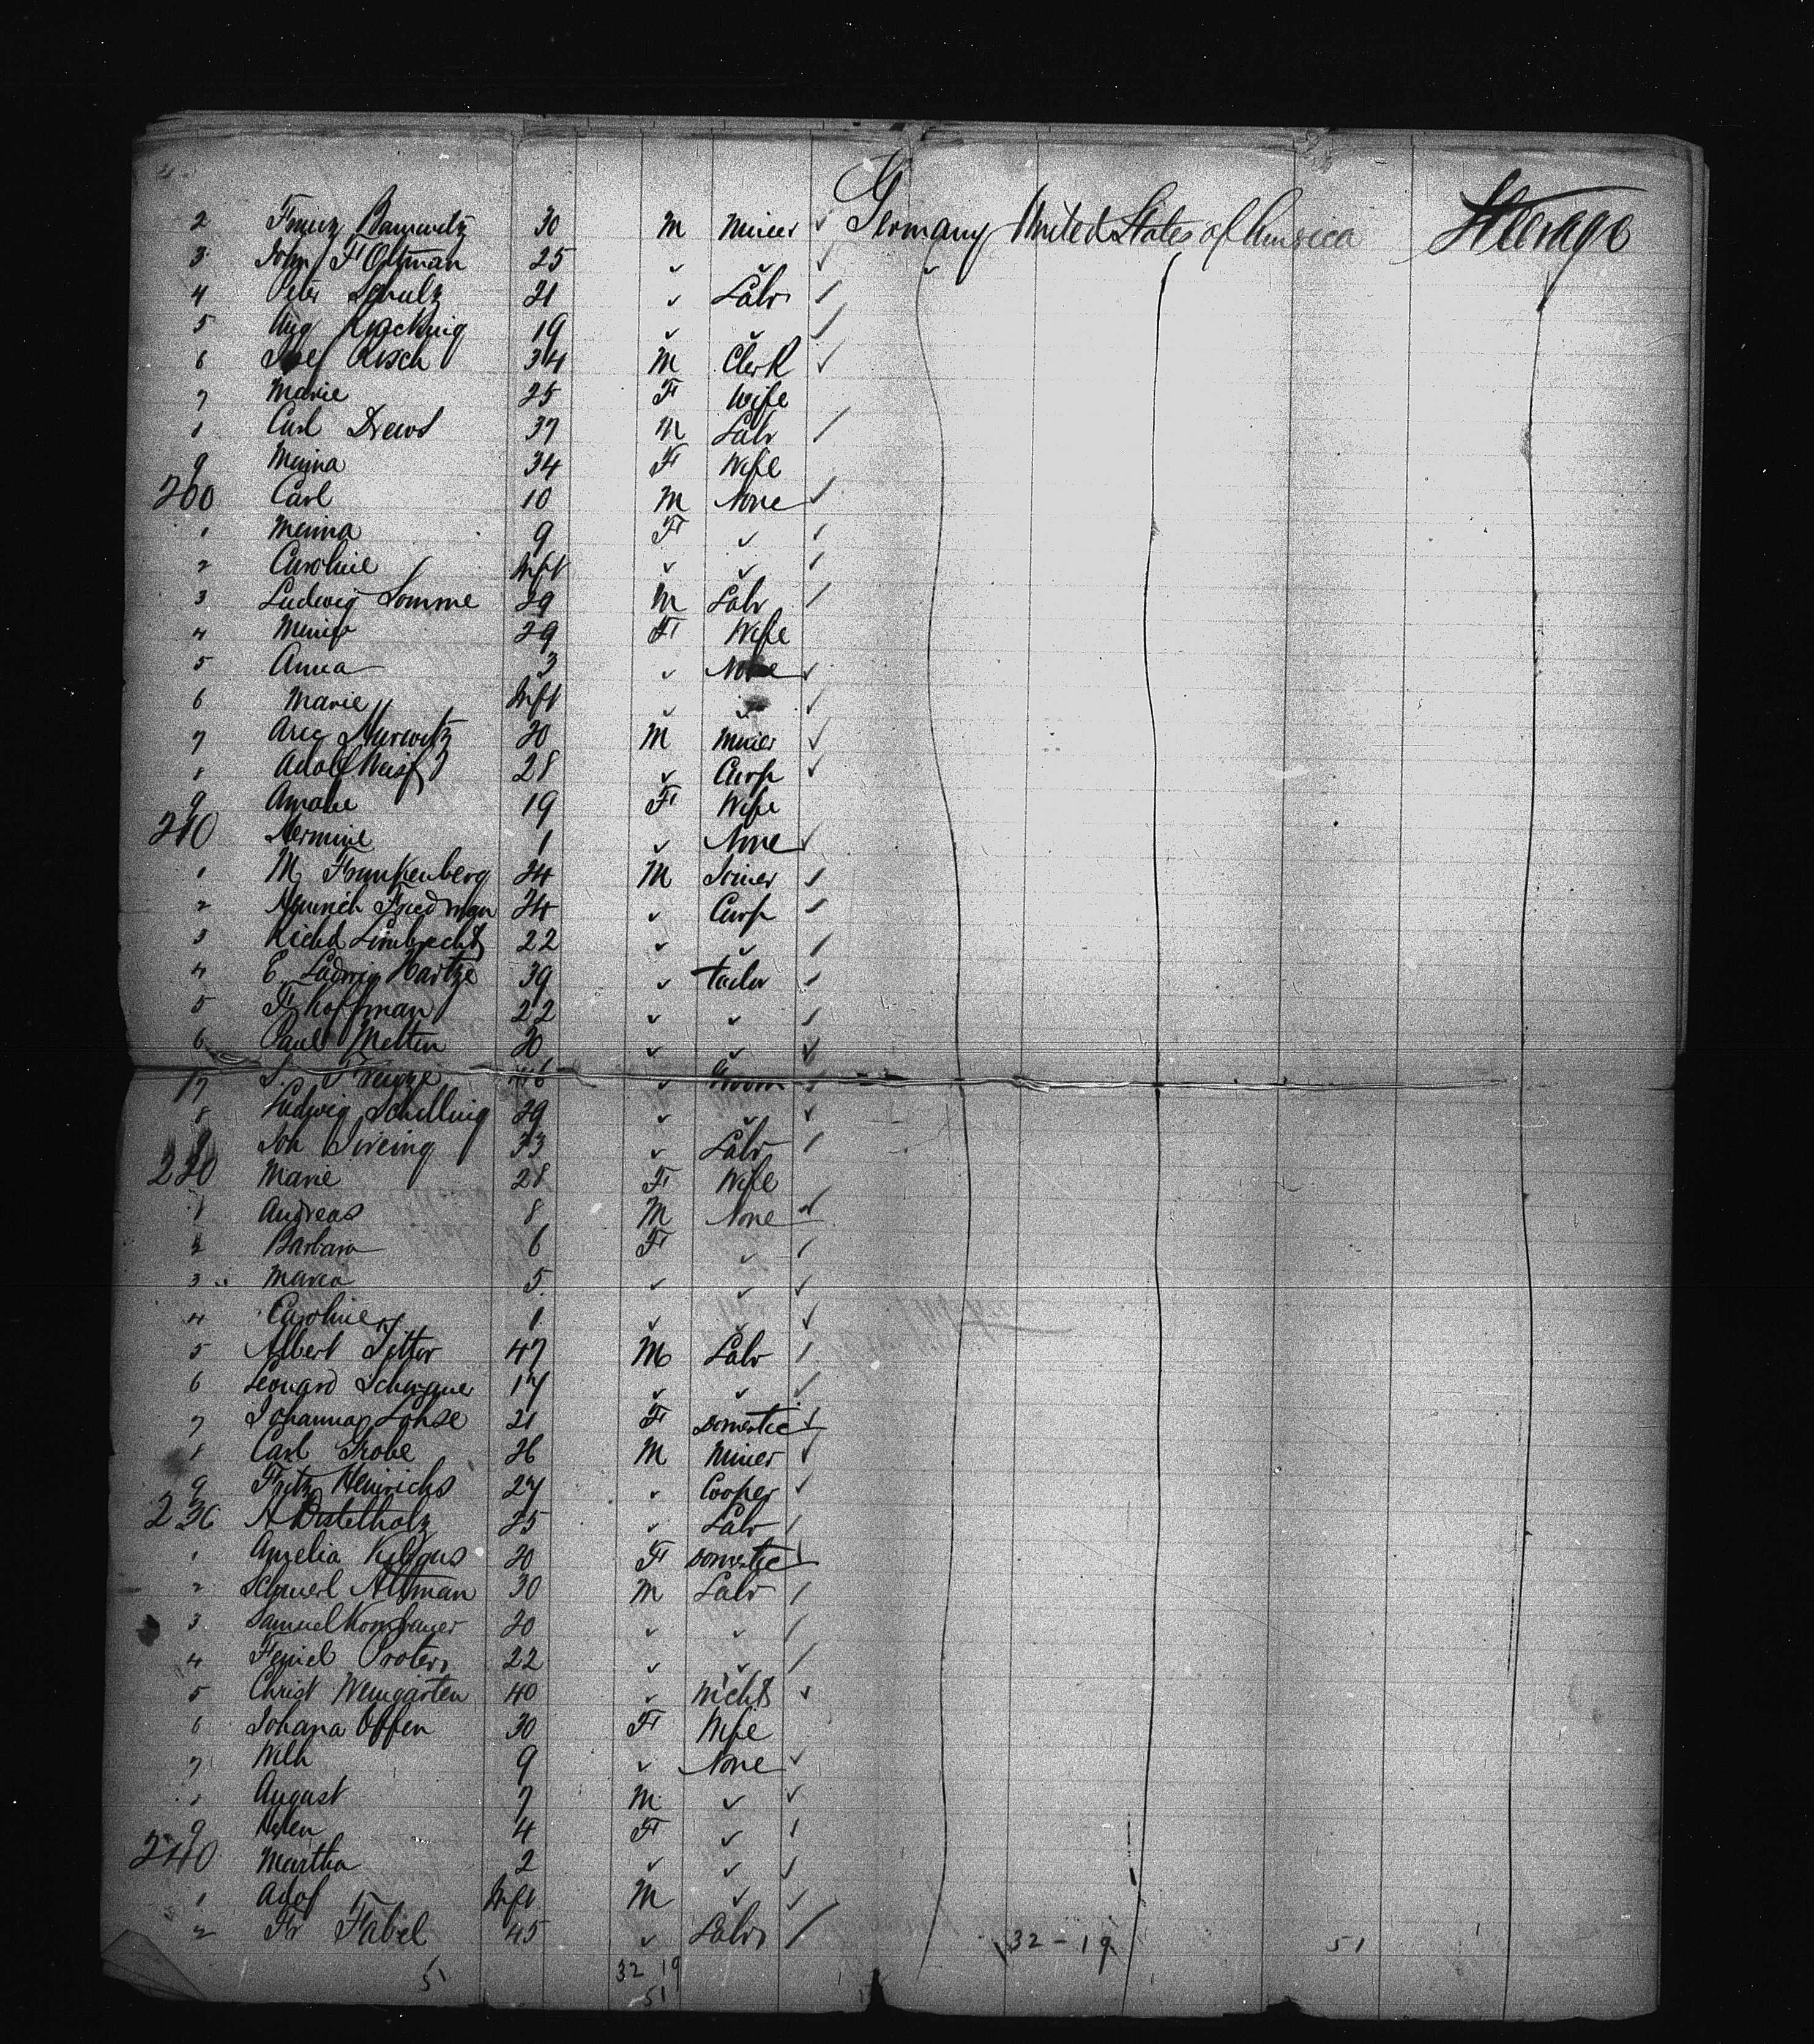 2 Franz 30 M Miner ✓ Germany United States of America Steerage
3 John F Oltman 25 ✓ ✓ ✓
4 Peter Schulz 21 ✓ Labr
5 Aug 19 ✓ ✓
6 Josef Risch 34 M Clerk ✓
7 Marie 25 F Wife
8 Carl Drews 37 M Labr
9 Minna 34 F Wife
200 Carl 10 M None
1 Minna 9 F ✓
2 Caroline Inft ✓ ✓
3 Ludwig Lomme 29 M Labr
4 29 F Wife
5 Anna 3 ✓ None ✓
6 Marie Inft ✓ ✓ ✓
7 Hurwitz 20 M Miner ✓
8 Adolf Weiss 28 ✓ Carp ✓
9 Amalie 19 F Wife
210 Hermine 1 ✓ None ✓
1 M Frankenberg 24 M Joiner
2 Heinrich Friedman 24 ✓ Carp
3 Richd Limbrecht 22 ✓ ✓
4 E. Ludwig Hartze 39 ✓ tailor
5 F Hoffman 22 ✓ ✓
6 Paul Melten 20 ✓ ✓ ✓
17 46 ✓ Groom
8 Ludwig Schelling 29 ✓ ✓ ✓
9 Joh 33 ✓ Labr
220 Marie 28 F Wife
1 Andreas 8 M None ✓
2 Barbara 6 F ✓
3 Maria 5 ✓ ✓ ✓
4 Caroline 1 ✓ ✓ ✓
5 Albert 47 M Labr
6 Leonard 17 ✓ ✓ ✓
7 Johanna Lohse 21 F Domestic ✓
8 Carl Grobe 26 M Miner ✓
9 Fritz Heinrichs 27 ✓ Cooper ✓
230 A Distelholz 25 ✓ Labr
1 Amelia 20 F Domestic
2 Schmerl Altman 30 M Labr
3 Samuel Kornbauer 20 ✓ ✓
4 22 ✓ ✓
5 Christ Weingarten 40 ✓ Nichts ✓
6 Johana Offen 30 F Wife
7 Wilh 9 ✓ None ✓
August 7 M ✓ ✓
9 Helen 4 F ✓
240 Martha 2 ✓ ✓
1 Adof Inft M ✓ ✓
2 Fr Fabel 45 ✓ Labr
32 - 19 51
51 32 19
51